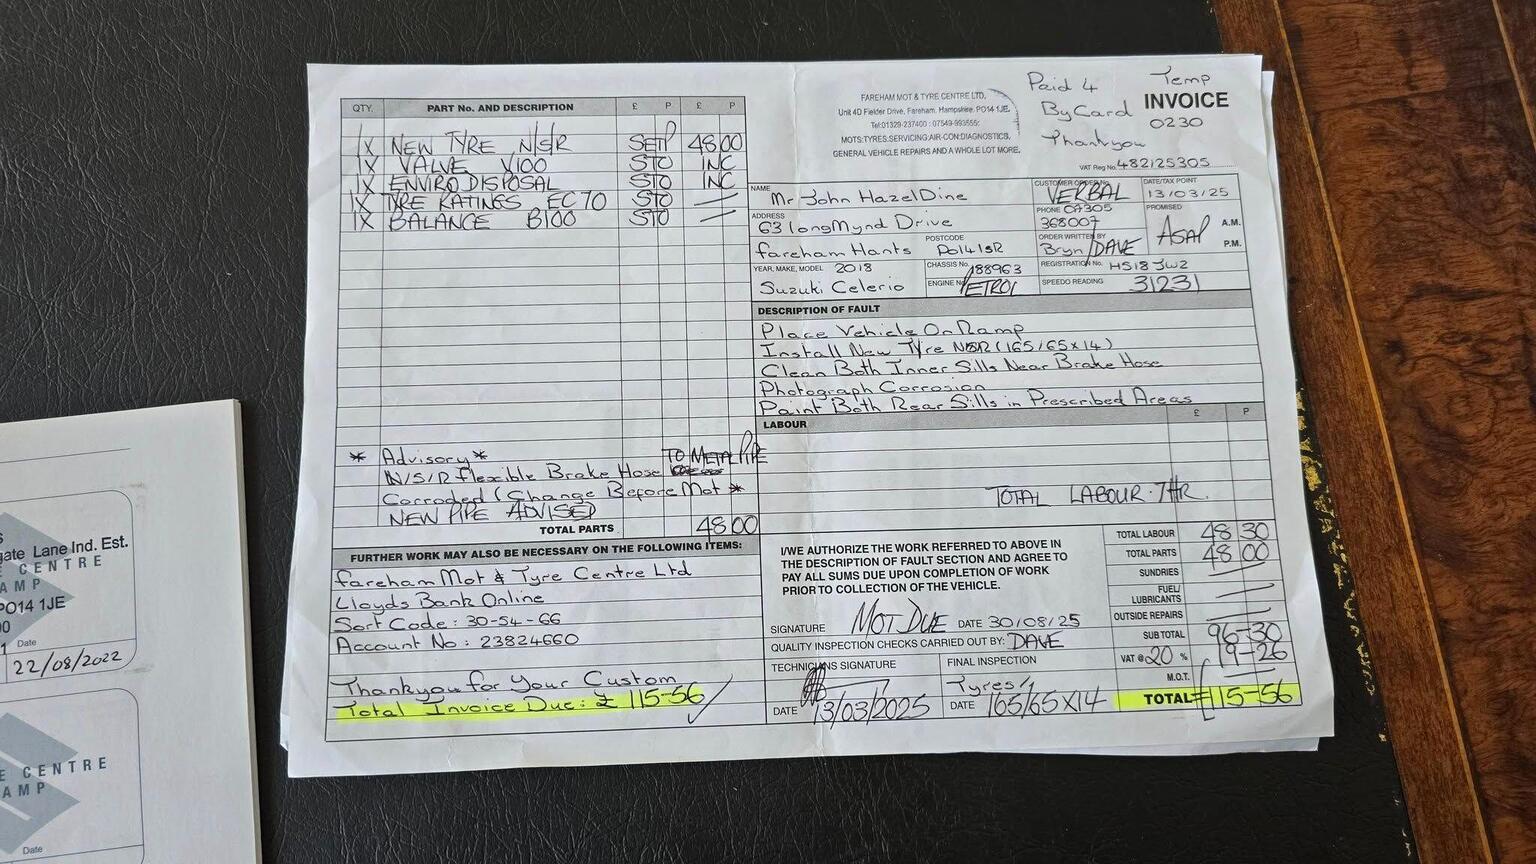 Paid 4
By Card
Thankyou
Temp
INVOICE
0230
FAREHAM MOT & TYRE CENTRE LTD,
Unit 4D Fielder Drive, Fareham, Hampshire. PO14 1JE.
Tel:01329-237400 : 07549-993555:
MOTS:TYRES:SERVICING:AIR-CON:DIAGNOSTICS,
GENERAL VEHICLE REPAIRS AND A WHOLE LOT MORE.
VAT Reg No. 482125305
QTY. PART No. AND DESCRIPTION £ P £ P
1X NEW TYRE N/S/R 48 00
1X VALVE V100 STO INC
1X ENVIRO DISPOSAL STO INC
1X TYRE RATINGS EC70 STO —
1X BALANCE B100 STO —
* Advisory *
N/S/R Flexible Brake Hose TO METAL PIPE
Corroded (Change Before Mot *
NEW PIPE ADVISED
TOTAL PARTS 48 00
FURTHER WORK MAY ALSO BE NECESSARY ON THE FOLLOWING ITEMS:
Fareham Mot & Tyre Centre Ltd
Lloyds Bank Online
Sort Code : 30-54-66
Account No : 23824660
Thankyou for Your Custom
Total Invoice Due: £ 115-56
NAME Mr John HazelDine
CUSTOMER ORDER No. VERBAL
DATE/TAX POINT 13/03/25
ADDRESS 63 LongMynd Drive
PHONE 07305
368007
PROMISED ASAP A.M.
P.M.
Fareham Hants POSTCODE PO14 1SR
ORDER WRITTEN BY Bryn/DAVE
YEAR, MAKE, MODEL 2018
Suzuki Celerio
CHASSIS No. 188963
REGISTRATION No. HS18 JWZ
ENGINE No. PETROL
SPEEDO READING 31231
DESCRIPTION OF FAULT
Place Vehicle On Ramp
Install New Tyre NSR (165/65x14)
Clean Both Inner Sills Near Brake Hose
Photograph Corrosion
Paint Both Rear Sills in Prescribed Areas
LABOUR £ P
TOTAL LABOUR
I/WE AUTHORIZE THE WORK REFERRED TO ABOVE IN
THE DESCRIPTION OF FAULT SECTION AND AGREE TO
PAY ALL SUMS DUE UPON COMPLETION OF WORK
PRIOR TO COLLECTION OF THE VEHICLE.
SIGNATURE MOT DUE DATE 30/08/25
QUALITY INSPECTION CHECKS CARRIED OUT BY: DAVE
TECHNICIANS SIGNATURE
DATE 13/03/2025
FINAL INSPECTION
Tyres/
DATE 165/65X14
TOTAL LABOUR 48 30
TOTAL PARTS 48 00
SUNDRIES —
FUEL/
LUBRICANTS —
OUTSIDE REPAIRS —
SUB TOTAL 96-30
VAT @ 20 % 19-26
M.O.T. —
TOTAL £115-56
gate Lane Ind. Est.
E CENTRE
AMP
PO14 1JE
Date
22/08/2022
E CENTRE
AMP
Date